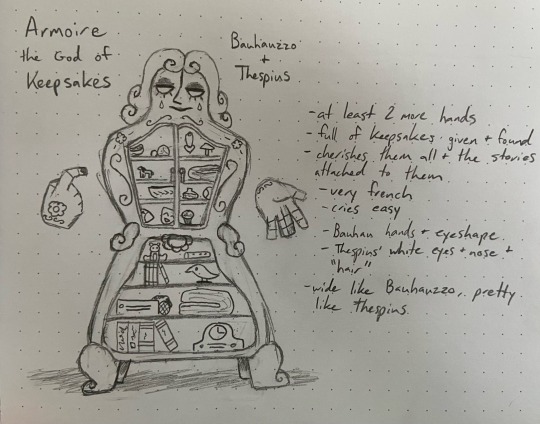 Armoire
the God of
Keepsakes
Bauhauzzo
+
Thespius
-at least 2 more hands
-full of keepsakes given + found
-cherishes them all + the stories
attached to them
-very french
-cries easy
-Bauhau hands + eyeshape
-Thespius' white eyes + nose +
"hair"
-wide like Bauhauzzo, pretty
like Thespius